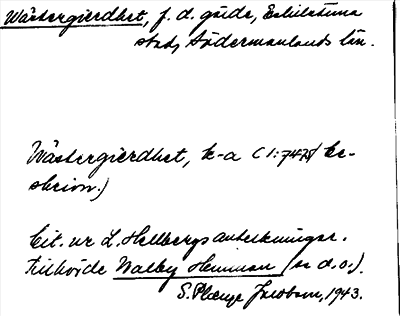 Wästergierdhet, f. d. gärde, Eskilstuna
stad, Södermanlands län.
Wästergierdhet, k-a (1:7475/ be-
skrivn.)
Cit. ur L. Hellbergs anteckningar.
Tillhörde Walby Hemman (se d. o.).
S. Plænge Jacobson, 1943.